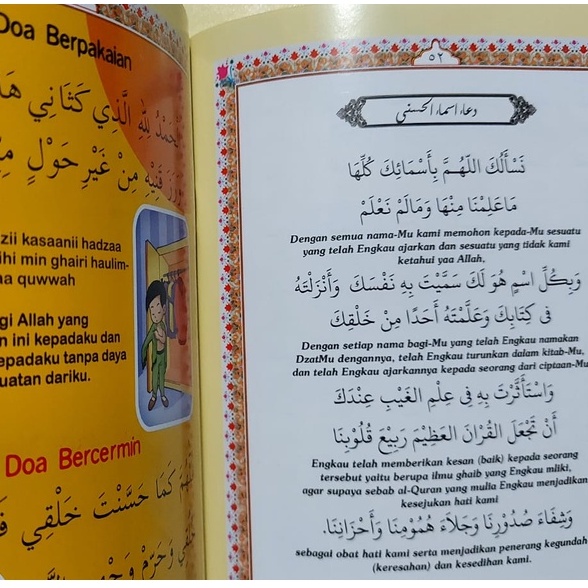 Doa Berpakaian
الَّذِي كَسَانِي
مِنْ غَيْرِ حَوْلٍ
zii kasaanii hadzaa
ihi min ghairi haulim-
aa quwwah
gi Allah yang
n ini kepadaku dan
epadaku tanpa daya
uatan dariku.
Doa Bercermin
كَمَا حَسَّنْتَ خَلْقِي
٥٢
دعاء اسماء الحسنى
نَسْأَلُكَ اللَّهُمَّ بِأَسْمَائِكَ كُلِّهَا
مَاعَلِمْنَا مِنْهَا وَمَالَمْ نَعْلَمْ
Dengan semua nama-Mu kami memohon kepada-Mu sesuatu
yang telah Engkau ajarkan dan sesuatu yang tidak kami
ketahui yaa Allah,
وَبِكُلِّ اسْمٍ هُوَ لَكَ سَمَّيْتَ بِهِ نَفْسَكَ وَأَنْزَلْتَهُ
فِى كِتَابِكَ وَعَلَّمْتَهُ أَحَدًا مِنْ خَلْقِكَ
Dengan setiap nama bagi-Mu yang telah Engkau namakan
DzatMu dengannya, telah Engkau turunkan dalam kitab-Mu,
dan telah Engkau ajarkannya kepada seorang dari ciptaan-Mu
وَاسْتَأْثَرْتَ بِهِ فِى عِلْمِ الْغَيْبِ عِنْدَكَ
أَنْ تَجْعَلَ الْقُرْانَ الْعَظِيْمَ رَبِيْعَ قُلُوْبِنَا
Engkau telah memberikan kesan (baik) kepada seorang
tersebut yaitu berupa ilmu ghaib yang Engkau mliki,
agar supaya sebab al-Quran yang mulia Engkau menjadikan
kesejukan hati kami
وَشِفَاءَ صُدُوْرِنَا وَجَلَاءَ هُمُوْمِنَا وَأَحْزَانِنَا.
sebagai obat hati kami serta menjadikan penerang kegundah
(keresahan) dan kesedihan kami.